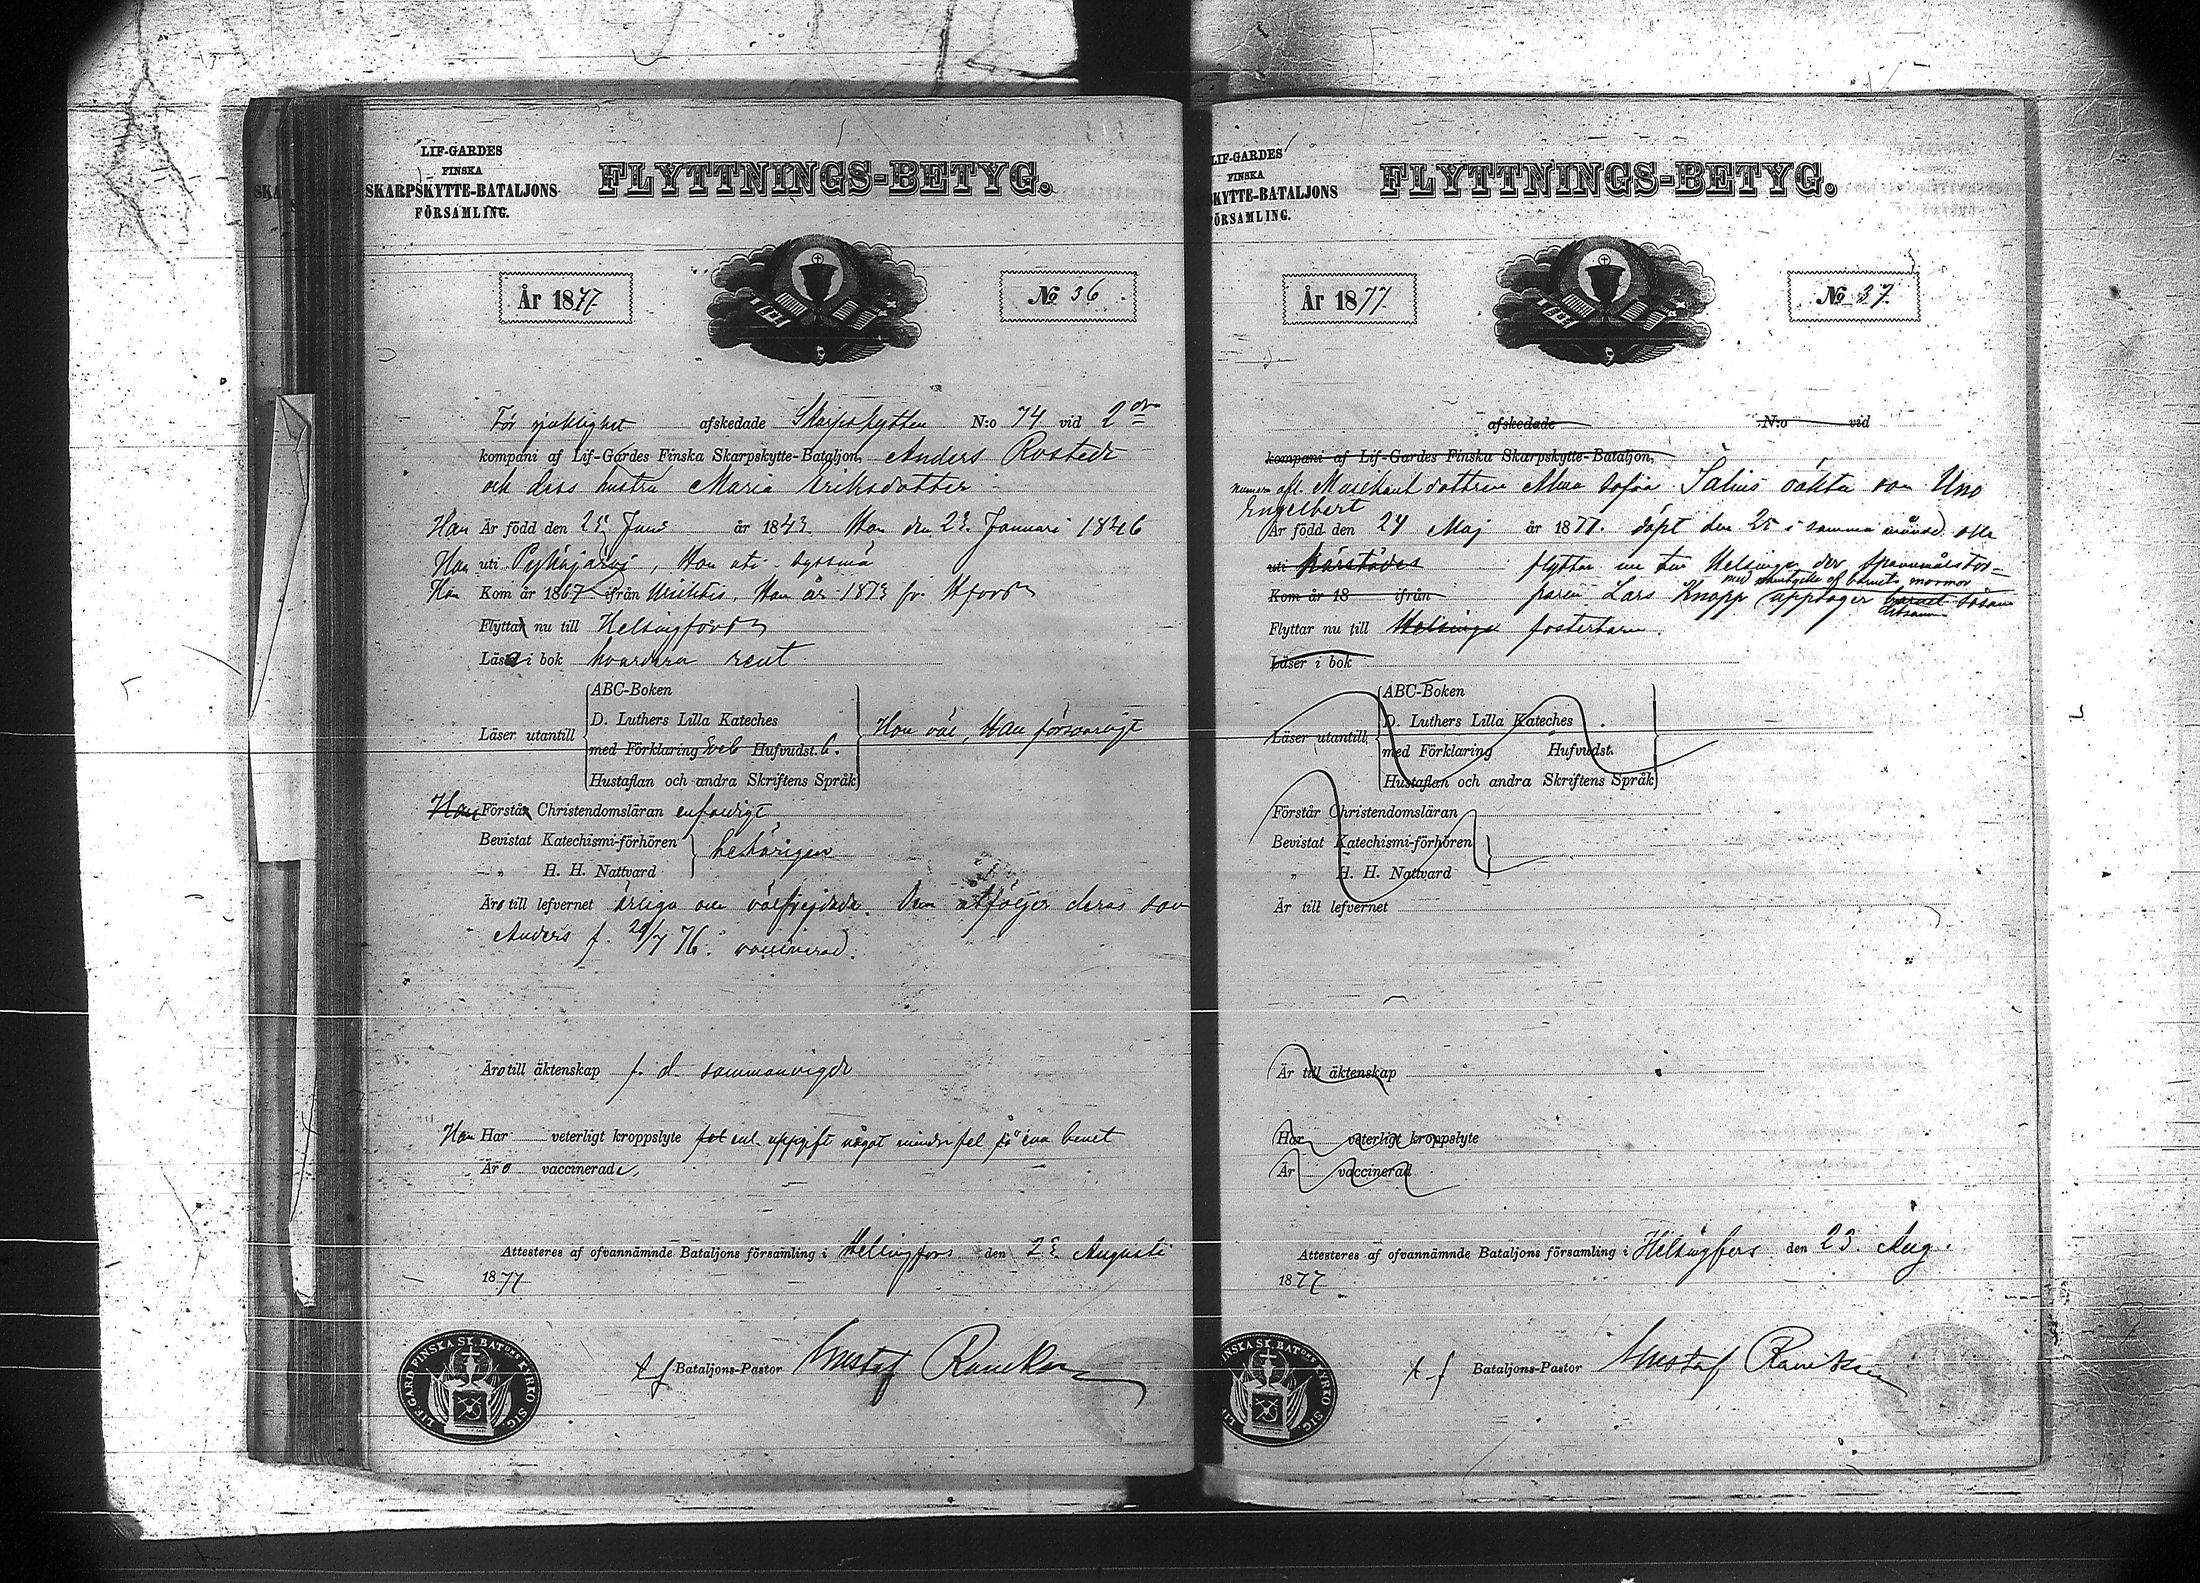 LIF-GARDES
FINSKA
SKARPSKYTTE-BATALJONS
FÖRSAMLING.
FLYTTNINGS-BETYG.
År 1877.
No 36.
För sjuklighet afskedade Skarpskytten N:o 74 vid 2
kompani af Lif-Gardes Finska Skarpskytte-Bataljon, Anders Rostedt
och dess hustru Maria Eriksdotter
Han Är född den Juni år 1843. Hon den Januari 1846
Han uti Pyhäjärvi, Hon uti Tyrvä
Han Kom år 1867 ifrån, Hon år 1873 fr. Hfors
Flyttar nu till Helsingfors
Läsa i bok hvardera rent
Läser utantill
ABC-Boken
D. Luthers Lilla Kateches
med Förklaring Sveb. Hufvudst. 6.
Hustaflan och andra Skriftens Språk
Hon väl, Han försvarligt
Han Förstår Christendomsläran enfaldigt
Bevistat Katechismi-förhören
„ H. H. Nattvard
behörigen
Äro till lefvernet ärliga och välfrejdade. Dem åtföljer deras son
Anders f. 29/7 76. vaccinerad.
Äro till äktenskap f. d. sammanvigde
Han Har veterligt kroppslyte enl. uppgift något mindre fel på ena benet
Äro vaccinerade,
Attesteras af ofvannämnde Bataljons församling i Helsingfors den Augusti
1877
t f Bataljons-Pastor Gustaf
LIF GARD FINSKA SK. BATONS KYRKO SIG.
LIF-GARDES
FINSKA
SKYTTE-BATALJONS
FÖRSAMLING.
FLYTTNINGS-BETYG.
År 1877.
No 37.
afskedade N:o vid
kompani af Lif-Gardes Finska Skarpskytte-Bataljon,
numera afl. dottren Alma Sofia Salius oäkta son Uno
Engelbert
Är född den 24 Maj år 1877. döpt den 25 i samma månad. och
uti flyttar nu till Helsinge der
med samtycke af barnets mormor
Kom år 18 ifrån paren Lars Knopp upptager barnet såsom
Flyttar nu till Helsinge fosterbarn.
Läser i bok
Läser utantill
ABC-Boken
D. Luthers Lilla Kateches
med Förklaring Hufvudst.
Hustaflan och andra Skriftens Språk
Förstår Christendomsläran
Bevistat Katechismi-förhören
„ H. H. Nattvard
Är till lefvernet
Är till äktenskap
Har veterligt kroppslyte
Är vaccinerad
Attesteres af ofvannämnde Bataljons församling i Helsingfors den 23. Aug.
1877
t f Bataljons-Pastor Gustaf
FINSKA SK. BATONS KYRKO SIG.